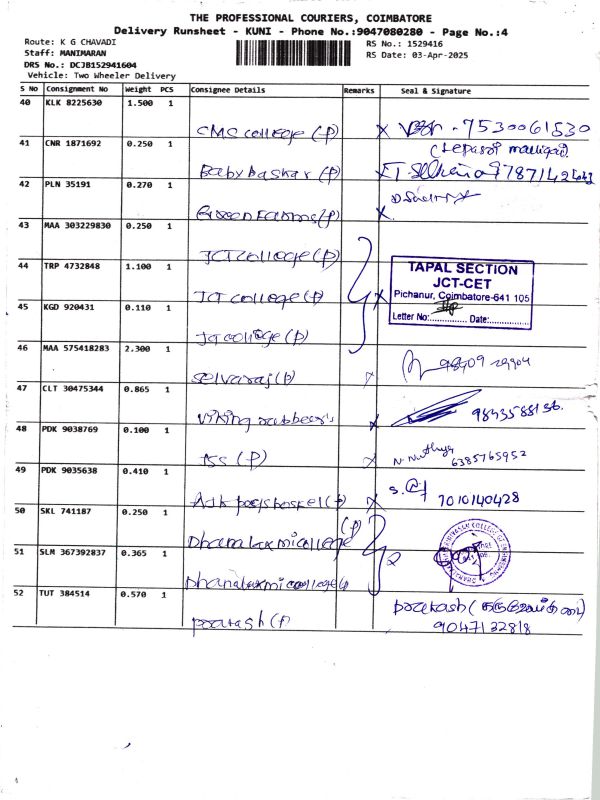 THE PROFESSIONAL COURIERS, COIMBATORE
Delivery Runsheet - KUNI - Phone No.:9047080280 - Page No.:4
Route: K G CHAVADI RS No.: 1529416
Staff: MANIMARAN RS Date: 03-Apr-2025
DRS No.: DCJB152941604
Vehicle: Two Wheeler Delivery
S No Consignment No Weight PCS Consignee Details Remarks Seal & Signature
40 KLK 8225630 1.500 1
CMS college (p) x 7530061530
41 CNR 1871692 0.250 1
Babybaskar (p)
42 PLN 35191 0.270 1
Green Farms (p) x
43 MAA 303229830 0.250 1
JCT College (p)
44 TRP 4732848 1.100 1
JCT college (p) x
TAPAL SECTION
JCT-CET
Pichanur, Coimbatore-641 105
Letter No: Date:
45 KGD 920431 0.110 1
Jct college (p)
46 MAA 575418283 2.300 1
Selvaraj (p) x
47 CLT 30475344 0.865 1
Viking rubbeers x 9843588136.
48 PDK 9038769 0.100 1
ISS (p) x N. Nuthya
6385765952
49 PDK 9035638 0.410 1
(p) x 7010140428
50 SKL 741187 0.250 1
Dhanalaxmi college (p)
51 SLM 367392837 0.365 1
2
Dhanalaxmi college (p)
52 TUT 384514 0.570 1
prakash (p) prakash
9047132818